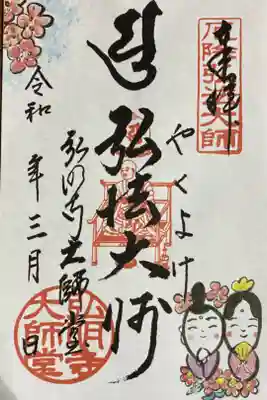 奉拝
厄除弘法大師
やくよけ
弘法大師
弘明寺大師堂
弘明寺大師堂
令和 年三月 日